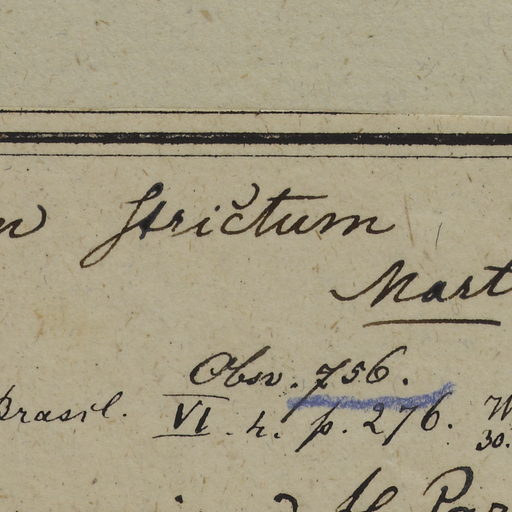 n strictum
Mart
Obsv. 756.
Brasil. VI. h. p. 276. W
30.
d. Par